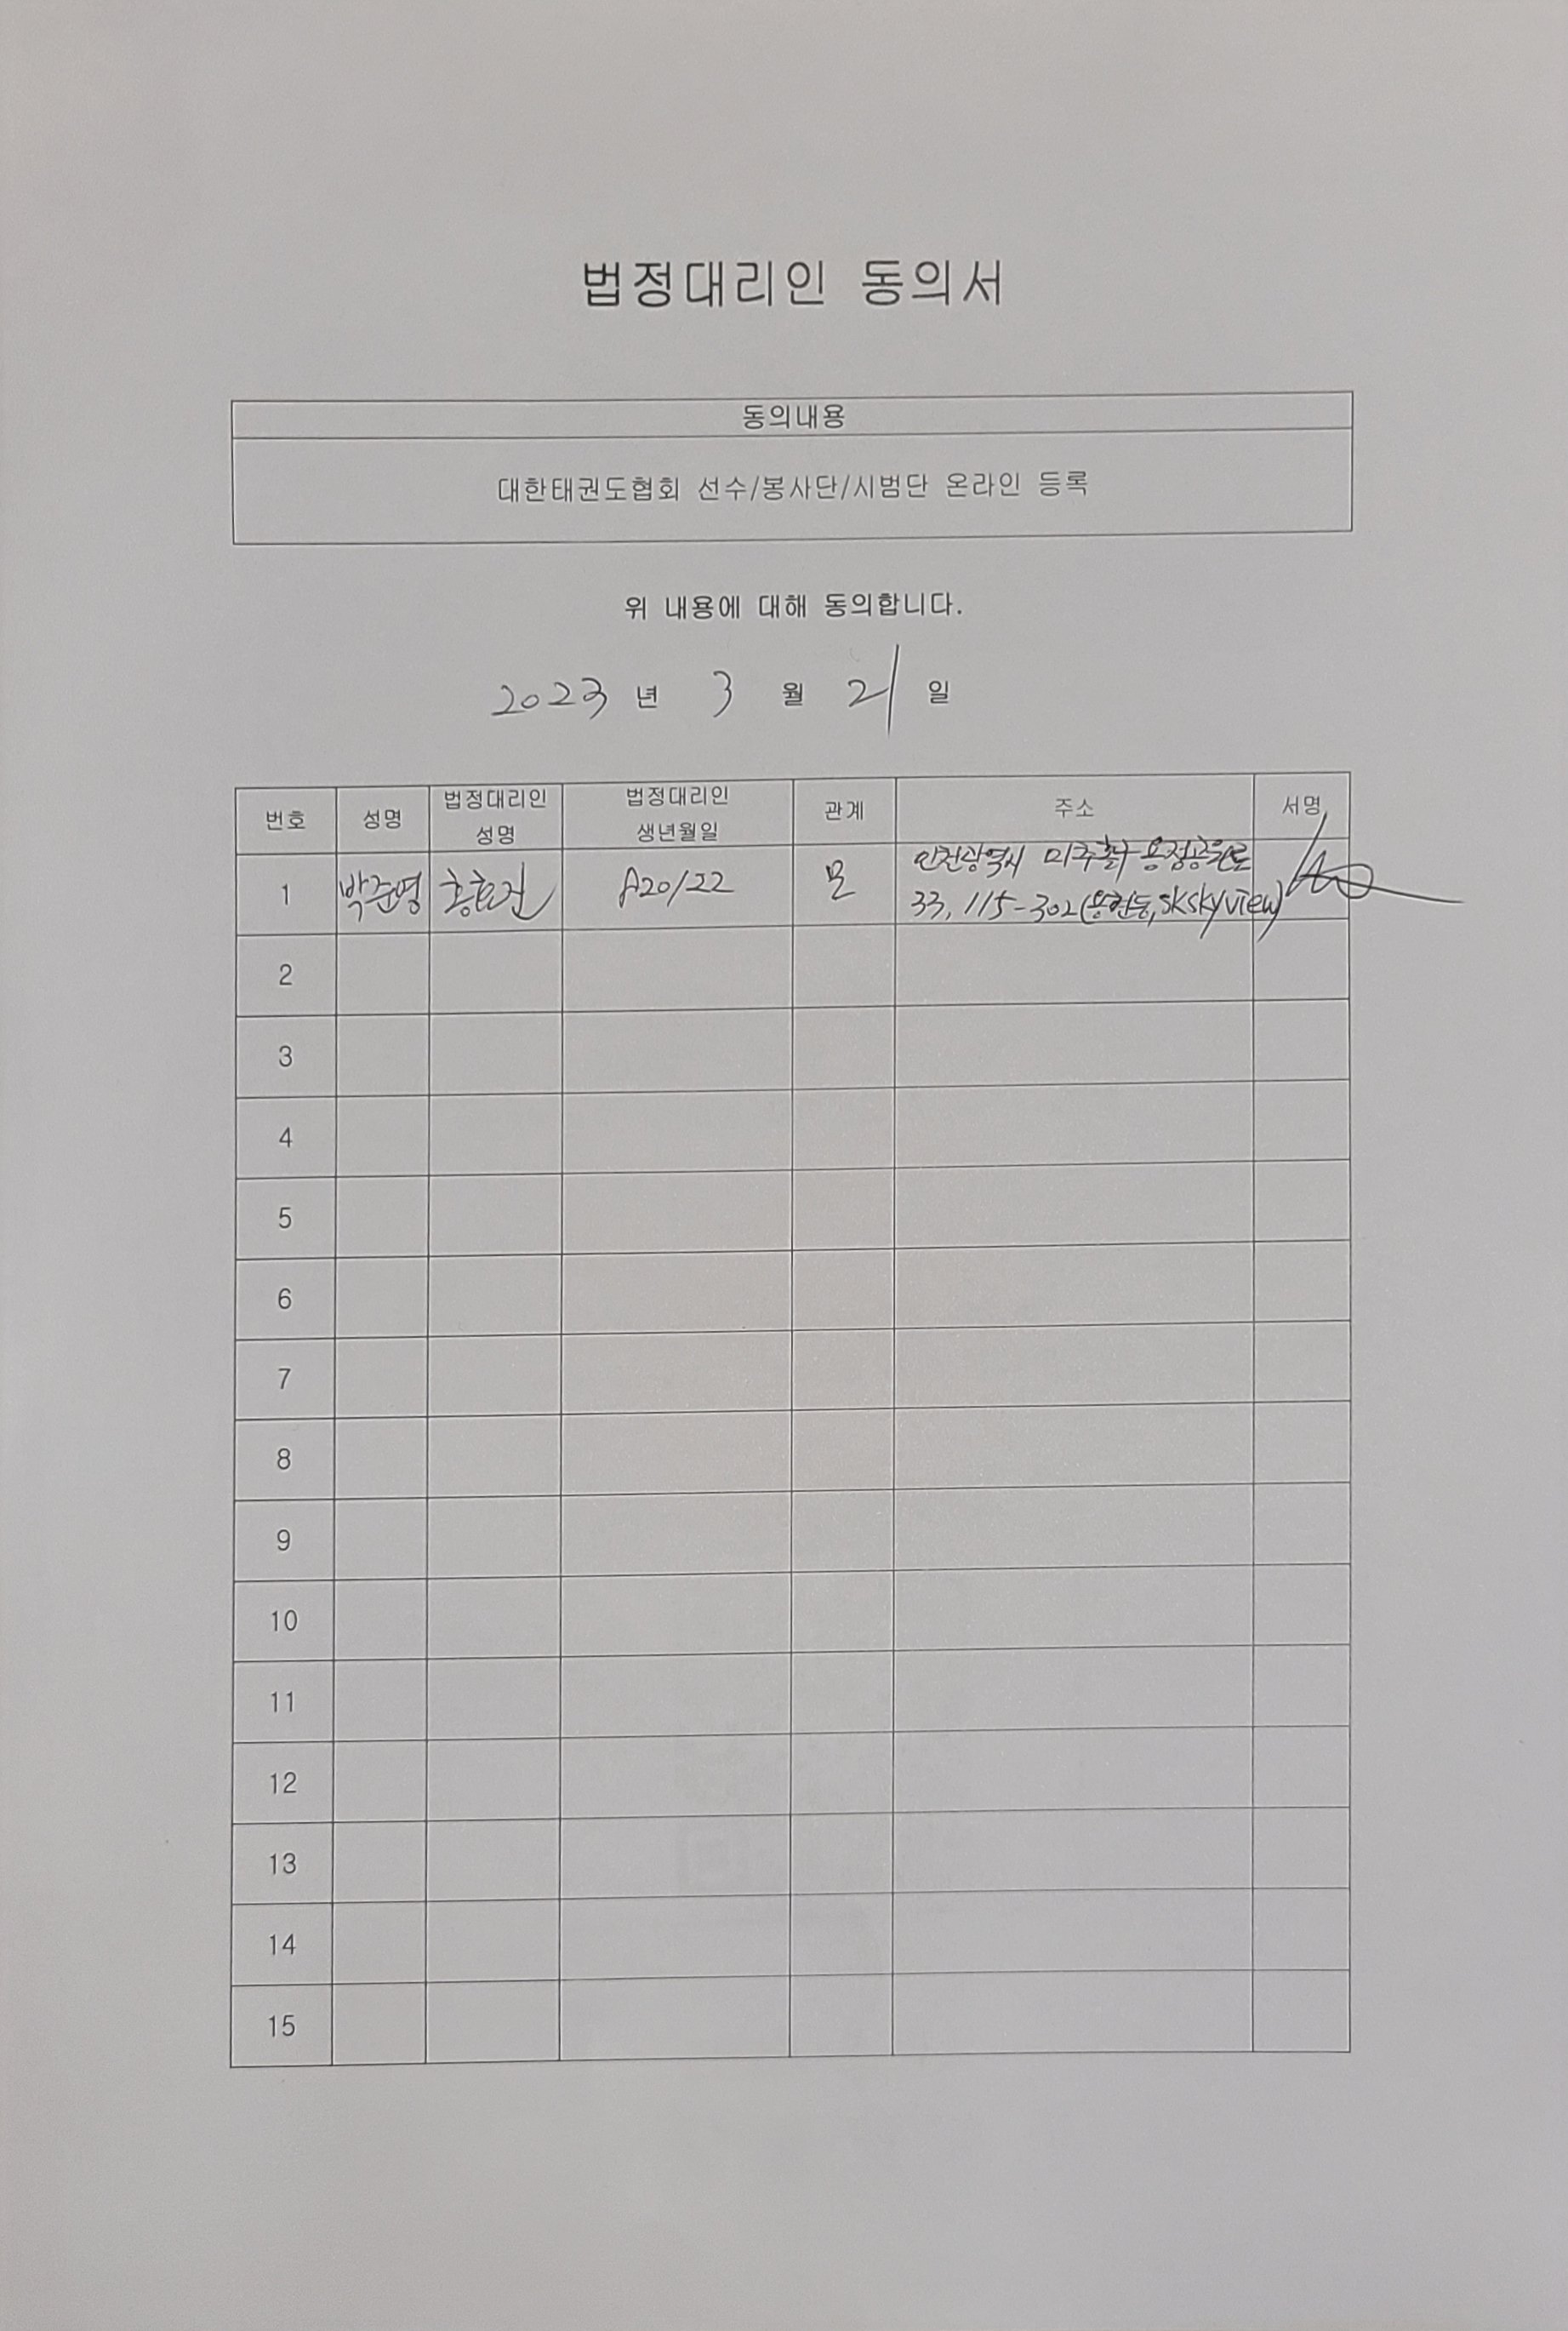 법정대리인 동의서
동의내용
대한태권도협회 선수/봉사단/시범단 온라인 등록
위 내용에 대해 동의합니다.
2023 년 3 월 21 일
번호 성명 법정대리인 성명 법정대리인 생년월일 관계 주소 서명
1 박준영 20122 모 인천광역시 미추홀구 용정공원로
33, 115-302(용현동, SK skyview)
2
3
4
5
6
7
8
9
10
11
12
13
14
15